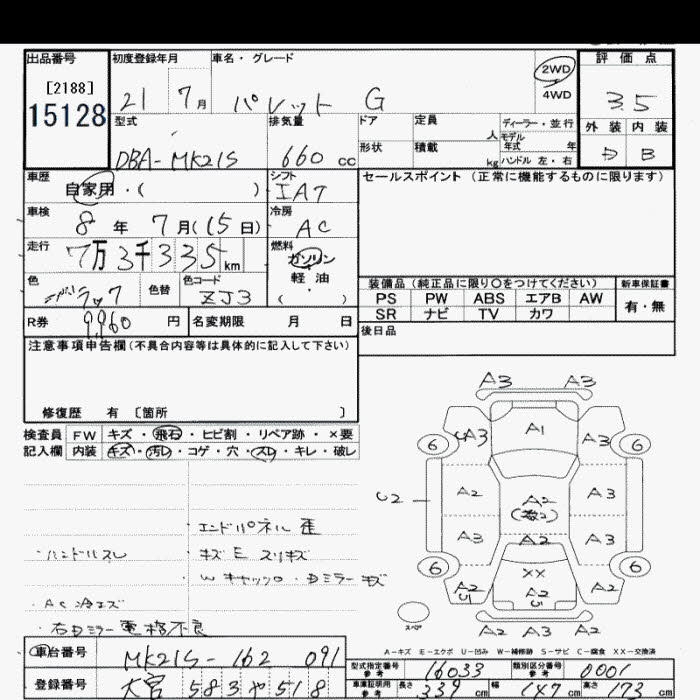 出品番号
[2188]
15128
初度登録年月
21 7月
車名・グレード
パレット G
2WD
4WD
評価点
3.5
外装 内装
D B
型式
DBA-MK21S
排気量
660 cc
ドア
定員
人
ディーラー・並行
モデル年式 年
形状
積載
kg
ハンドル 左・右
車歴
自家用・( )
シフト
IAT
セールスポイント (正常に機能するものに限ります)
車検
8年 7月(15日)
冷房
AC
走行
7万3千335km
燃料
ガソリン
軽油
( )
色
色替
色コード
ZJ3
装備品 (純正品に限り○をつけてください)
新車保証書
PS PW ABS エアB AW
有・無
SR ナビ TV カワ
R券
9,960円
名変期限 月 日
後日品
注意事項申告欄(不具合内容等は具体的に記入して下さい)
修復歴 有 〔箇所 〕
検査員 FW キズ・飛石・ヒビ割・リペア跡・×要
記入欄 内装 キズ・汚レ・コゲ・穴・スレ・キレ・破レ
エンドパネル歪
・ハンドルスレ
キズ E スリキズ
・AC冷エズ
・右Dミラー電格不良
A3 A3
A1
A3 A3
6 6
A2 A2 A3
U2
A3 A2 A3
6 6
XX
A2 U1 A2 U1 A2
スペア
A2 A3 A2
A-キズ E-エクボ U-凹み W-補修跡 S-サビ C-腐食 XX-交換済
車台番号
MK21S-162 091
登録番号
大宮 583 や 518
型式指定番号 参考
16033
類別区分番号 参考
0001
車庫証明用 参考
長さ 339 cm
幅 147 cm
高さ 173 cm